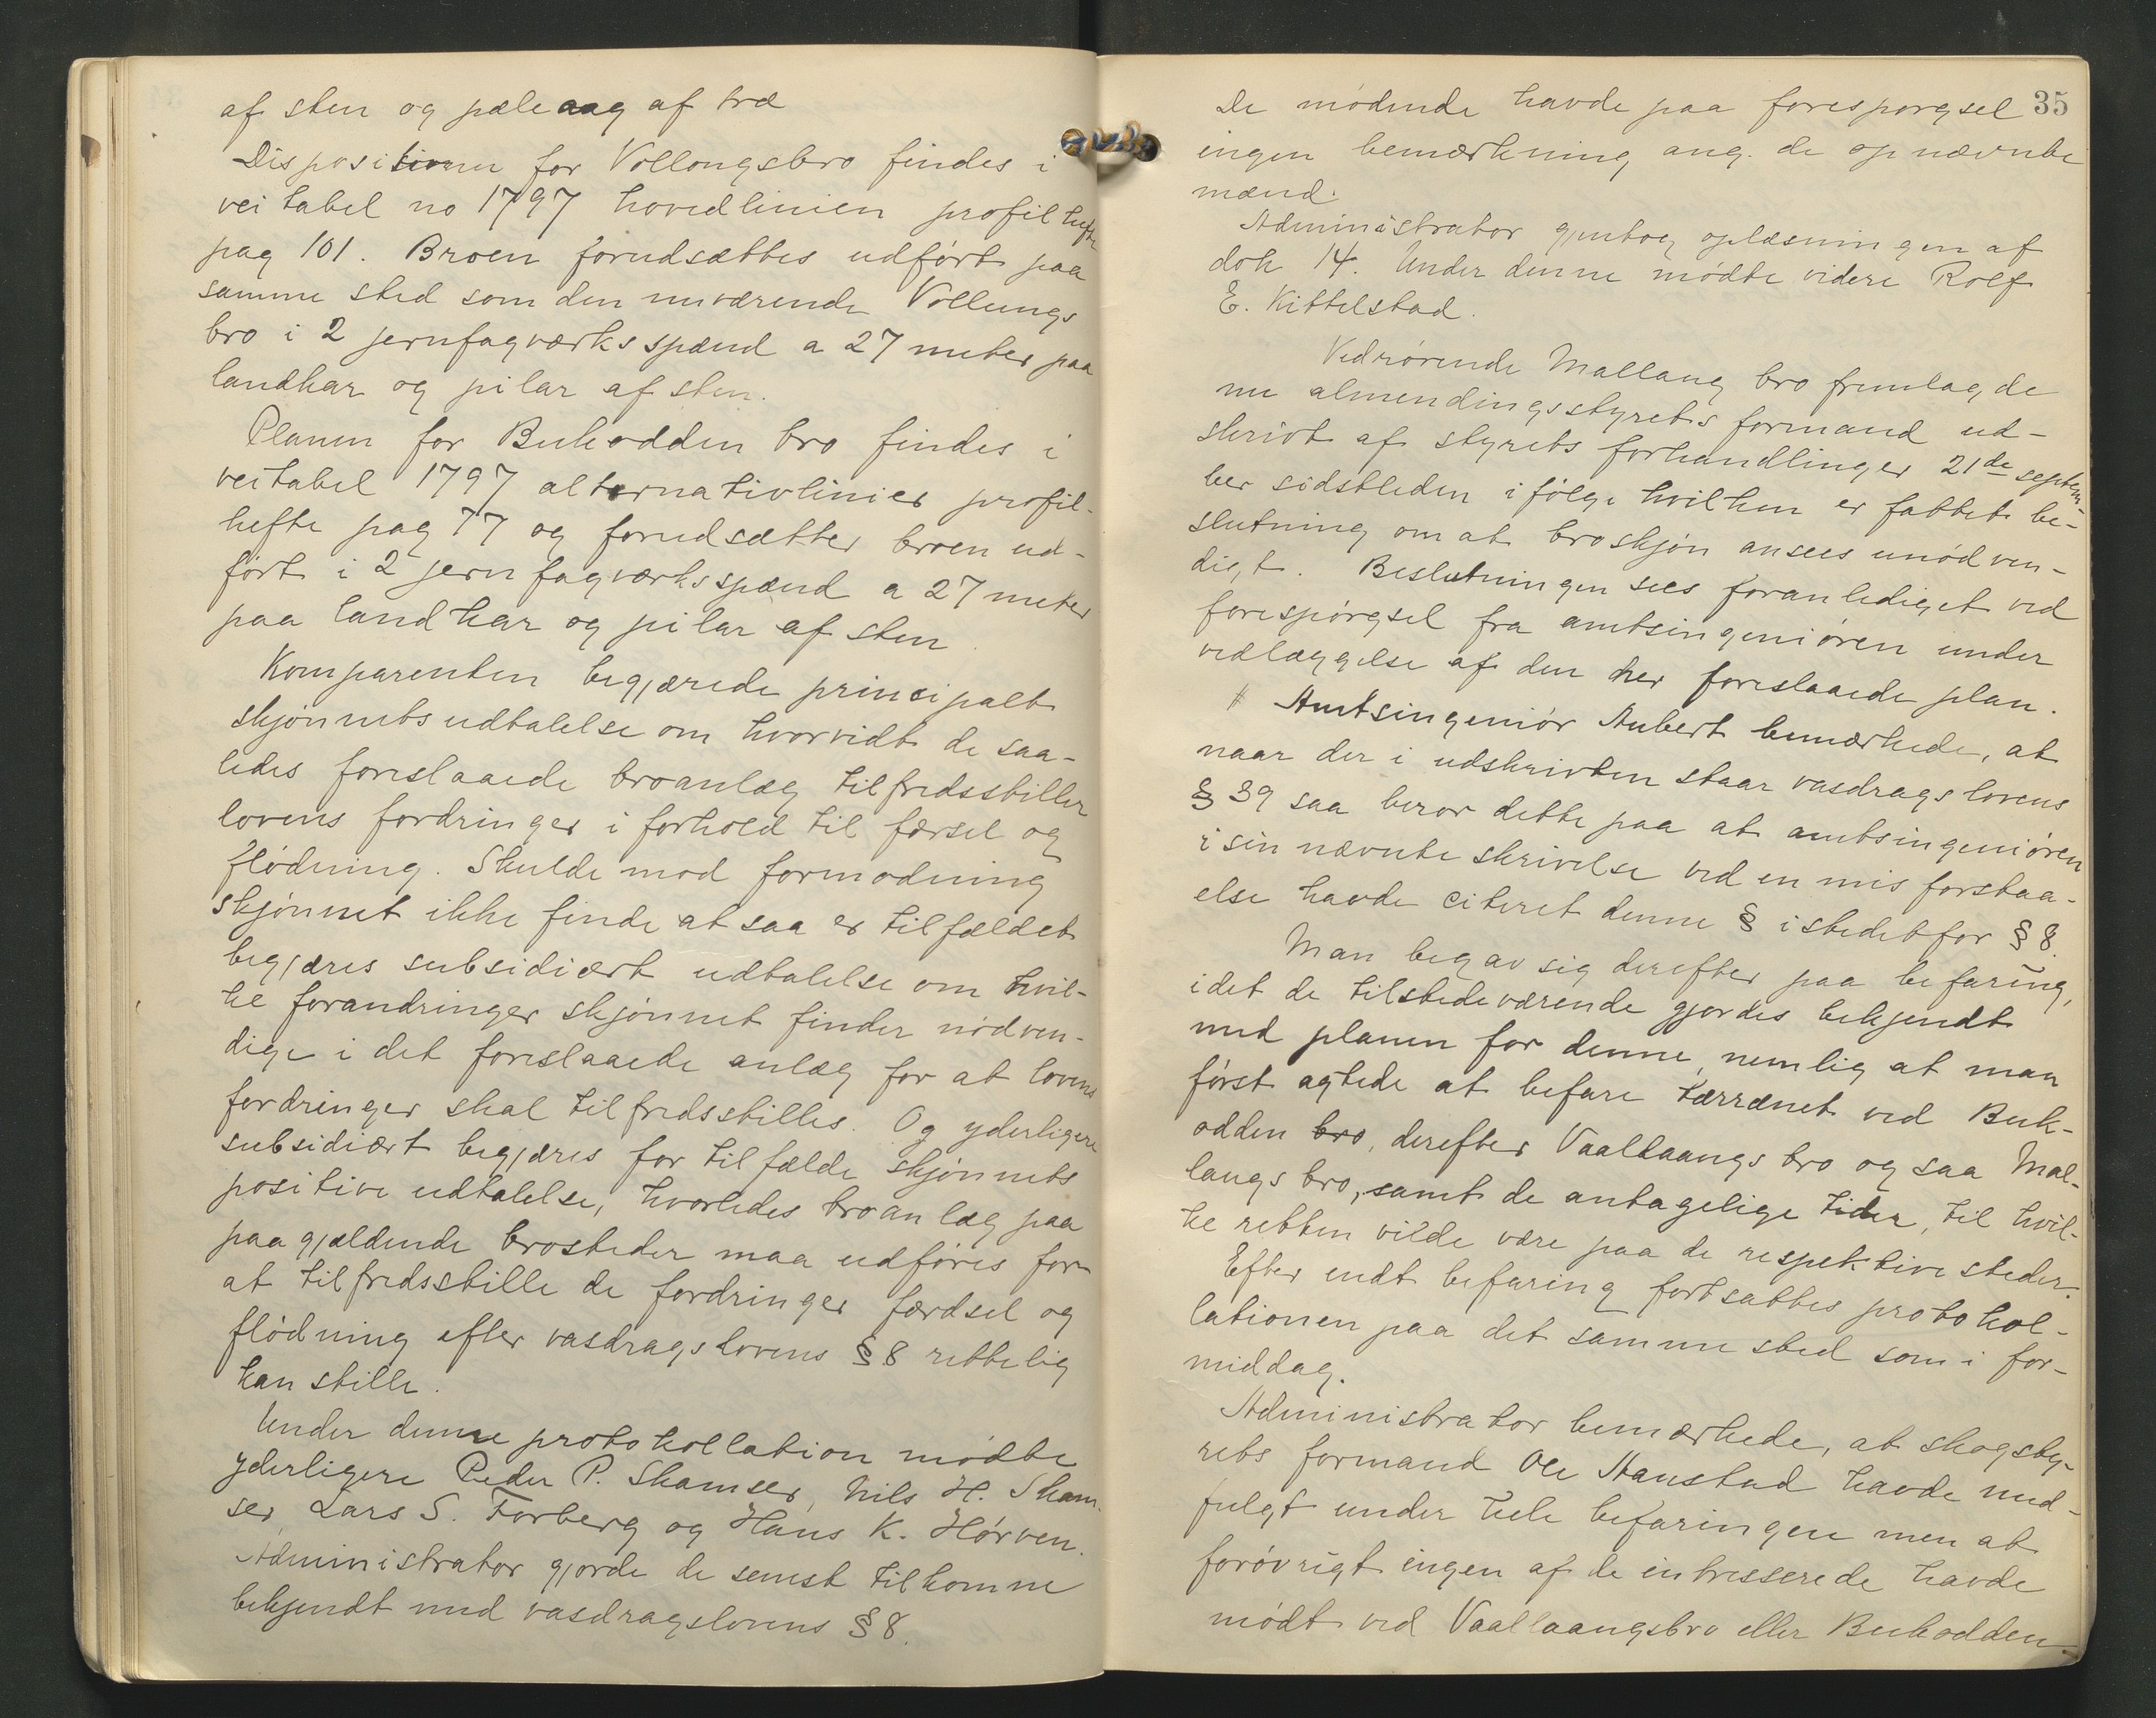 af sten og pæleaag af træ
Dispositionen for Vollongsbro findes i
veitabel no 1797 hovedlinien profilhefte
pag 101. Broen forudsættes udført paa
samme sted som den nuværende Vollungs
bro i 2 jernfagværksspænd a 27 meter paa
landkar og pilar af sten.
Planen for Bukodden bro findes i
veitabel 1797 alternativlinier profil-
hefte pag 77 og forudsætter broen ud-
ført i 2 jernfagværksspænd a 27 meter
paa landkar og pilar af sten.
Komparenten begjærede principalt
skjønnets udtalelse om hvorvidt de saa-
ledes foreslaaede broanlæg tilfredsstiller
lovens fordringer i forhold til færsel og
flødning. Skulde mod formodning
skjønnet ikke finde at saa er tilfældet
begjæres subsidiært udtalelse om hvil-
ke forandringer skjønnet finder nødven-
dige i det foreslaaede anlæg for at lovens
fordringer skal tilfredsstilles. Og yderligere
subsidiært begjæres for tilfælde skjønnets
positive udtalelse, hvorledes broanlæg paa
paagjældende brosteder maa udføres for
at tilfredsstille de fordringer færdsel og
flødning efter vasdragslovens § 8 rettelig
kan stille.
Under denne protokollation mødte
yderligere Peder P. Skamser, Nils H. Skam-
ser, Lars S. Forberg og Hans K. Hørven.
Administrator gjorde de senest tilkomne
bekjendt med vasdragslovens § 8.
35
De mødende havde paa forespørgsel
ingen bemærkning ang. de opnævnte
mænd.
Administrator gjentog oplæsningen af
dok 14. Under denne mødte videre Rolf
E. Kittelstad.
Vedrørende Mallang bro fremlagde
nu almendingsstyrets formand ud-
skrivt af styrets forhandlinger 21de septem-
ber sidstleden ifølge hvilken er fattet be-
slutning om at broskjøn ansees unødven-
digt. Beslutningen sees foranlediget ved
forespørgsel fra amtsingeniøren under
vedlæggelse af den her foreslaaede plan.
Amtsingeniør Aubert bemærkede, at
naar der i udskrivten staar vasdragslovens
§ 39 saa beror dette paa at amtsingeniøren
i sin nævnte skrivelse ved en misforstaa-
else havde citeret denne § istedetfor § 8.
Man begav sig derefter paa befaring,
idet de tilstedeværende gjordes bekjendt
med planen for denne, nemlig at man
først agtede at befare tærrænet ved Buk-
odden bro, derefter Vaallaangs bro og saa Mal-
langs bro, samt de antagelige tider, til hvil-
ke retten vilde være paa de respektive steder.
Efter endt befaring fortsattes protokol-
lationen paa det samme sted som i for-
middag.
Administrator bemærkede, at skogsty-
rets formand Ole Haustad havde med-
fulgt under hele befaringen men at
forøvrigt ingen af de intresserede havde
mødt ved Vaallaangsbro eller Bukodden